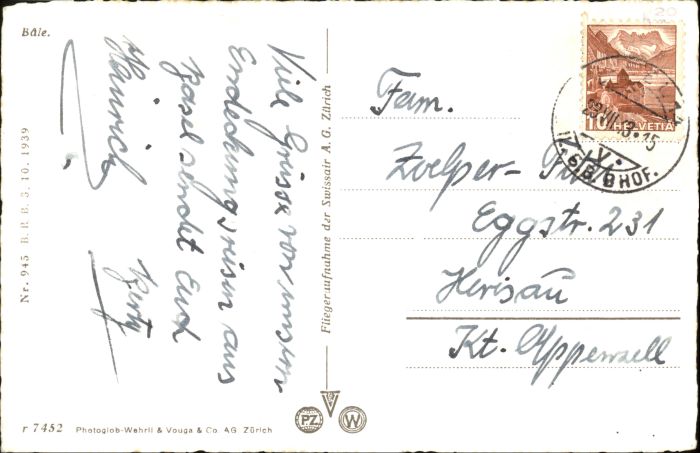 Bâle.
Viele Grüsse von unserer
Endeckungsreisen aus
Basel sendet Euch
Heinrich
Berty
Nr. 945 B. R. B. 3. 10. 1939
Fliegeraufnahme der Swissair A. G. Zürich
r 7452 Photoglob-Wehrli & Vouga & Co. AG. Zürich
PZ
W
10 HELVETIA
BHOF.
Fam.
Zoelper-
Eggstr. 231
Herisau
Kt. Appenzell